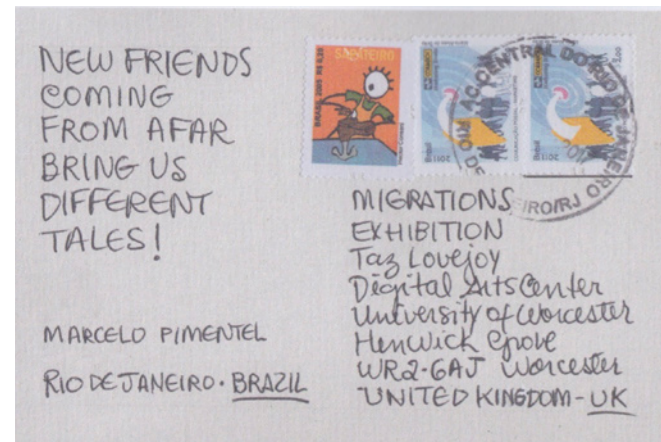 NEW FRIENDS
COMING
FROM AFAR
BRING US
DIFFERENT
TALES!
MARCELO PIMENTEL
RIO DE JANEIRO. BRAZIL
SAPATEIRO
BRASIL 2005 R$ 0,20
Brasil
2011
Brasil
2011
AC CENTRAL DO RIO DE JANEIRO
RIO DE
EIRO/RJ
MIGRATIONS
EXHIBITION
Taz Lovejoy
Digital Arts Center
University of Worcester
Henwick Grove
WR2-6AJ Worcester
UNITED KINGDOM - UK